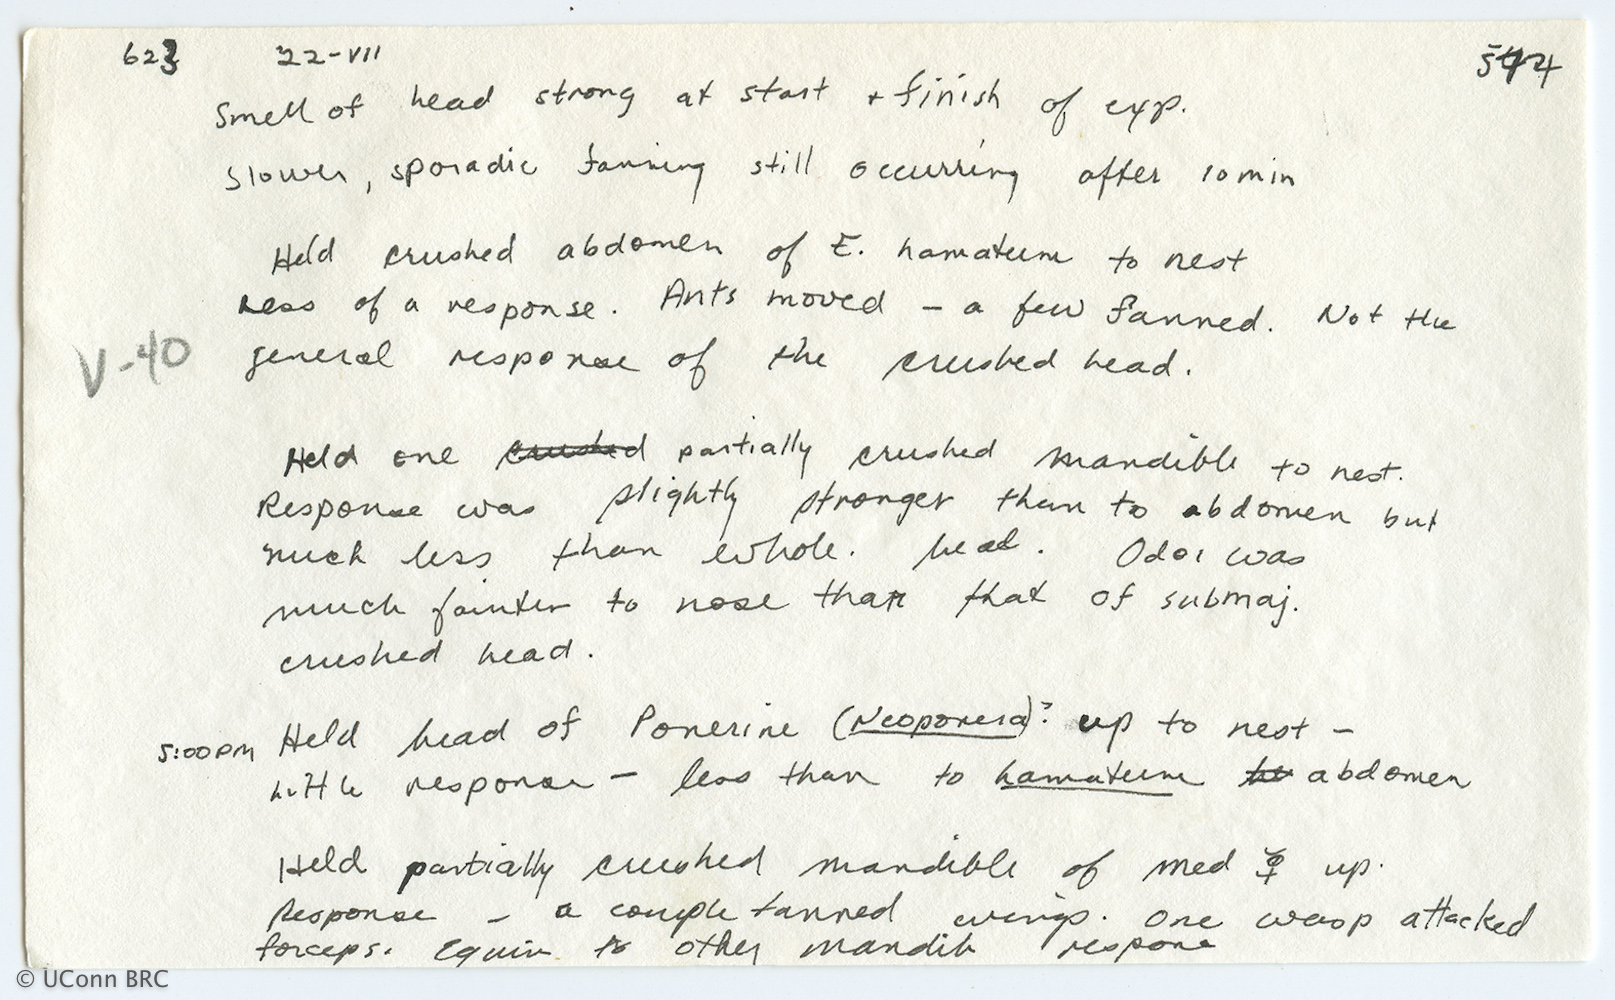 623 22-VII
Smell of head strong at start + finish of exp.
Slower, sporadic fanning still occurring after 10 min
Held crushed abdomen of E. hamatum to nest
Less of a response. Ants moved - a few fanned. Not the
general response of the crushed head.
V-40
Held one crushed partially crushed mandible to nest.
Response was slightly stronger than to abdomen but
much less than whole. head. Odor was
much fainter to nose than that of submaj.
crushed head.
5:00 PM Held head of Ponerine (Neoponera)? up to nest -
little response - less than to hamatum abdomen
Held partially crushed mandible of med ☿ up.
Response - a couple fanned wings. One wasp attacked
forceps. Equiv to other mandib response
© UConn BRC